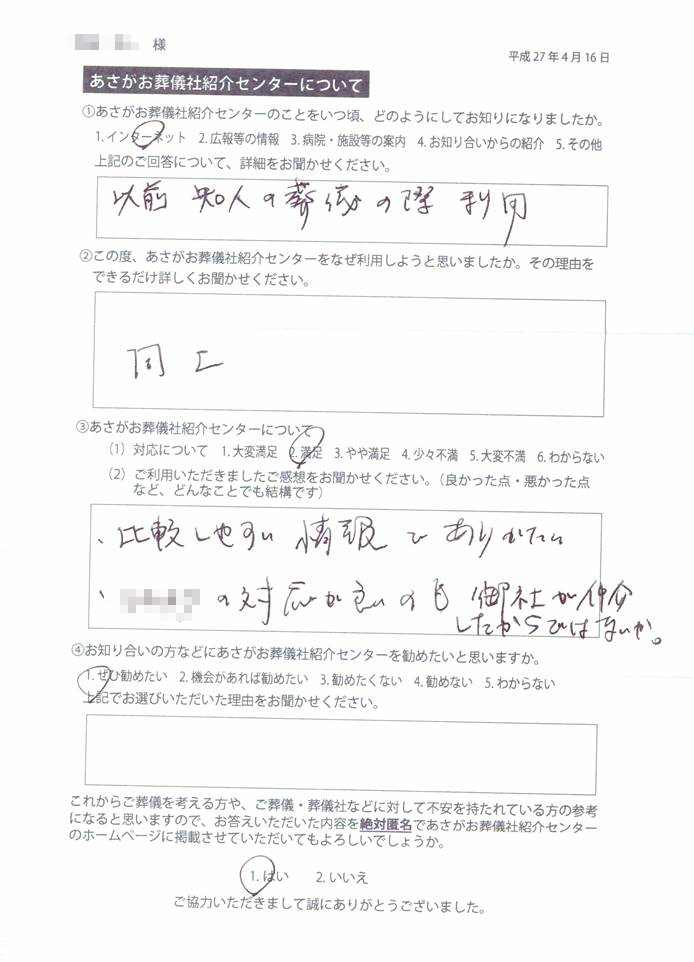 様
平成27年4月16日
あさがお葬儀社紹介センターについて
①あさがお葬儀社紹介センターのことをいつ頃、どのようにしてお知りになりましたか。
1.インターネット 2.広報等の情報 3.病院・施設等の案内 4.お知り合いからの紹介 5.その他
上記のご回答について、詳細をお聞かせください。
以前 知人の葬儀の際 利用
②この度、あさがお葬儀社紹介センターをなぜ利用しようと思いましたか。その理由を
できるだけ詳しくお聞かせください。
同上
③あさがお葬儀社紹介センターについて
(1) 対応について 1.大変満足 2.満足 3.やや満足 4.少々不満 5.大変不満 6.わからない
(2) ご利用いただきましたご感想をお聞かせください。(良かった点・悪かった点
など、どんなことでも結構です)
、比較しやすい 情報で ありがたい
、の対応が良いのも 御社が仲介
したからではないか。
④お知り合いの方などにあさがお葬儀社紹介センターを勧めたいと思いますか。
1.ぜひ勧めたい 2.機会があれば勧めたい 3.勧めたくない 4.勧めない 5.わからない
上記でお選びいただいた理由をお聞かせください。
これからご葬儀を考える方や、ご葬儀・葬儀社などに対して不安を持たれている方の参考
になると思いますので、お答えいただいた内容を絶対匿名であさがお葬儀社紹介センター
のホームページに掲載させていただいてもよろしいでしょうか。
1.はい 2.いいえ
ご協力いただきまして誠にありがとうございました。